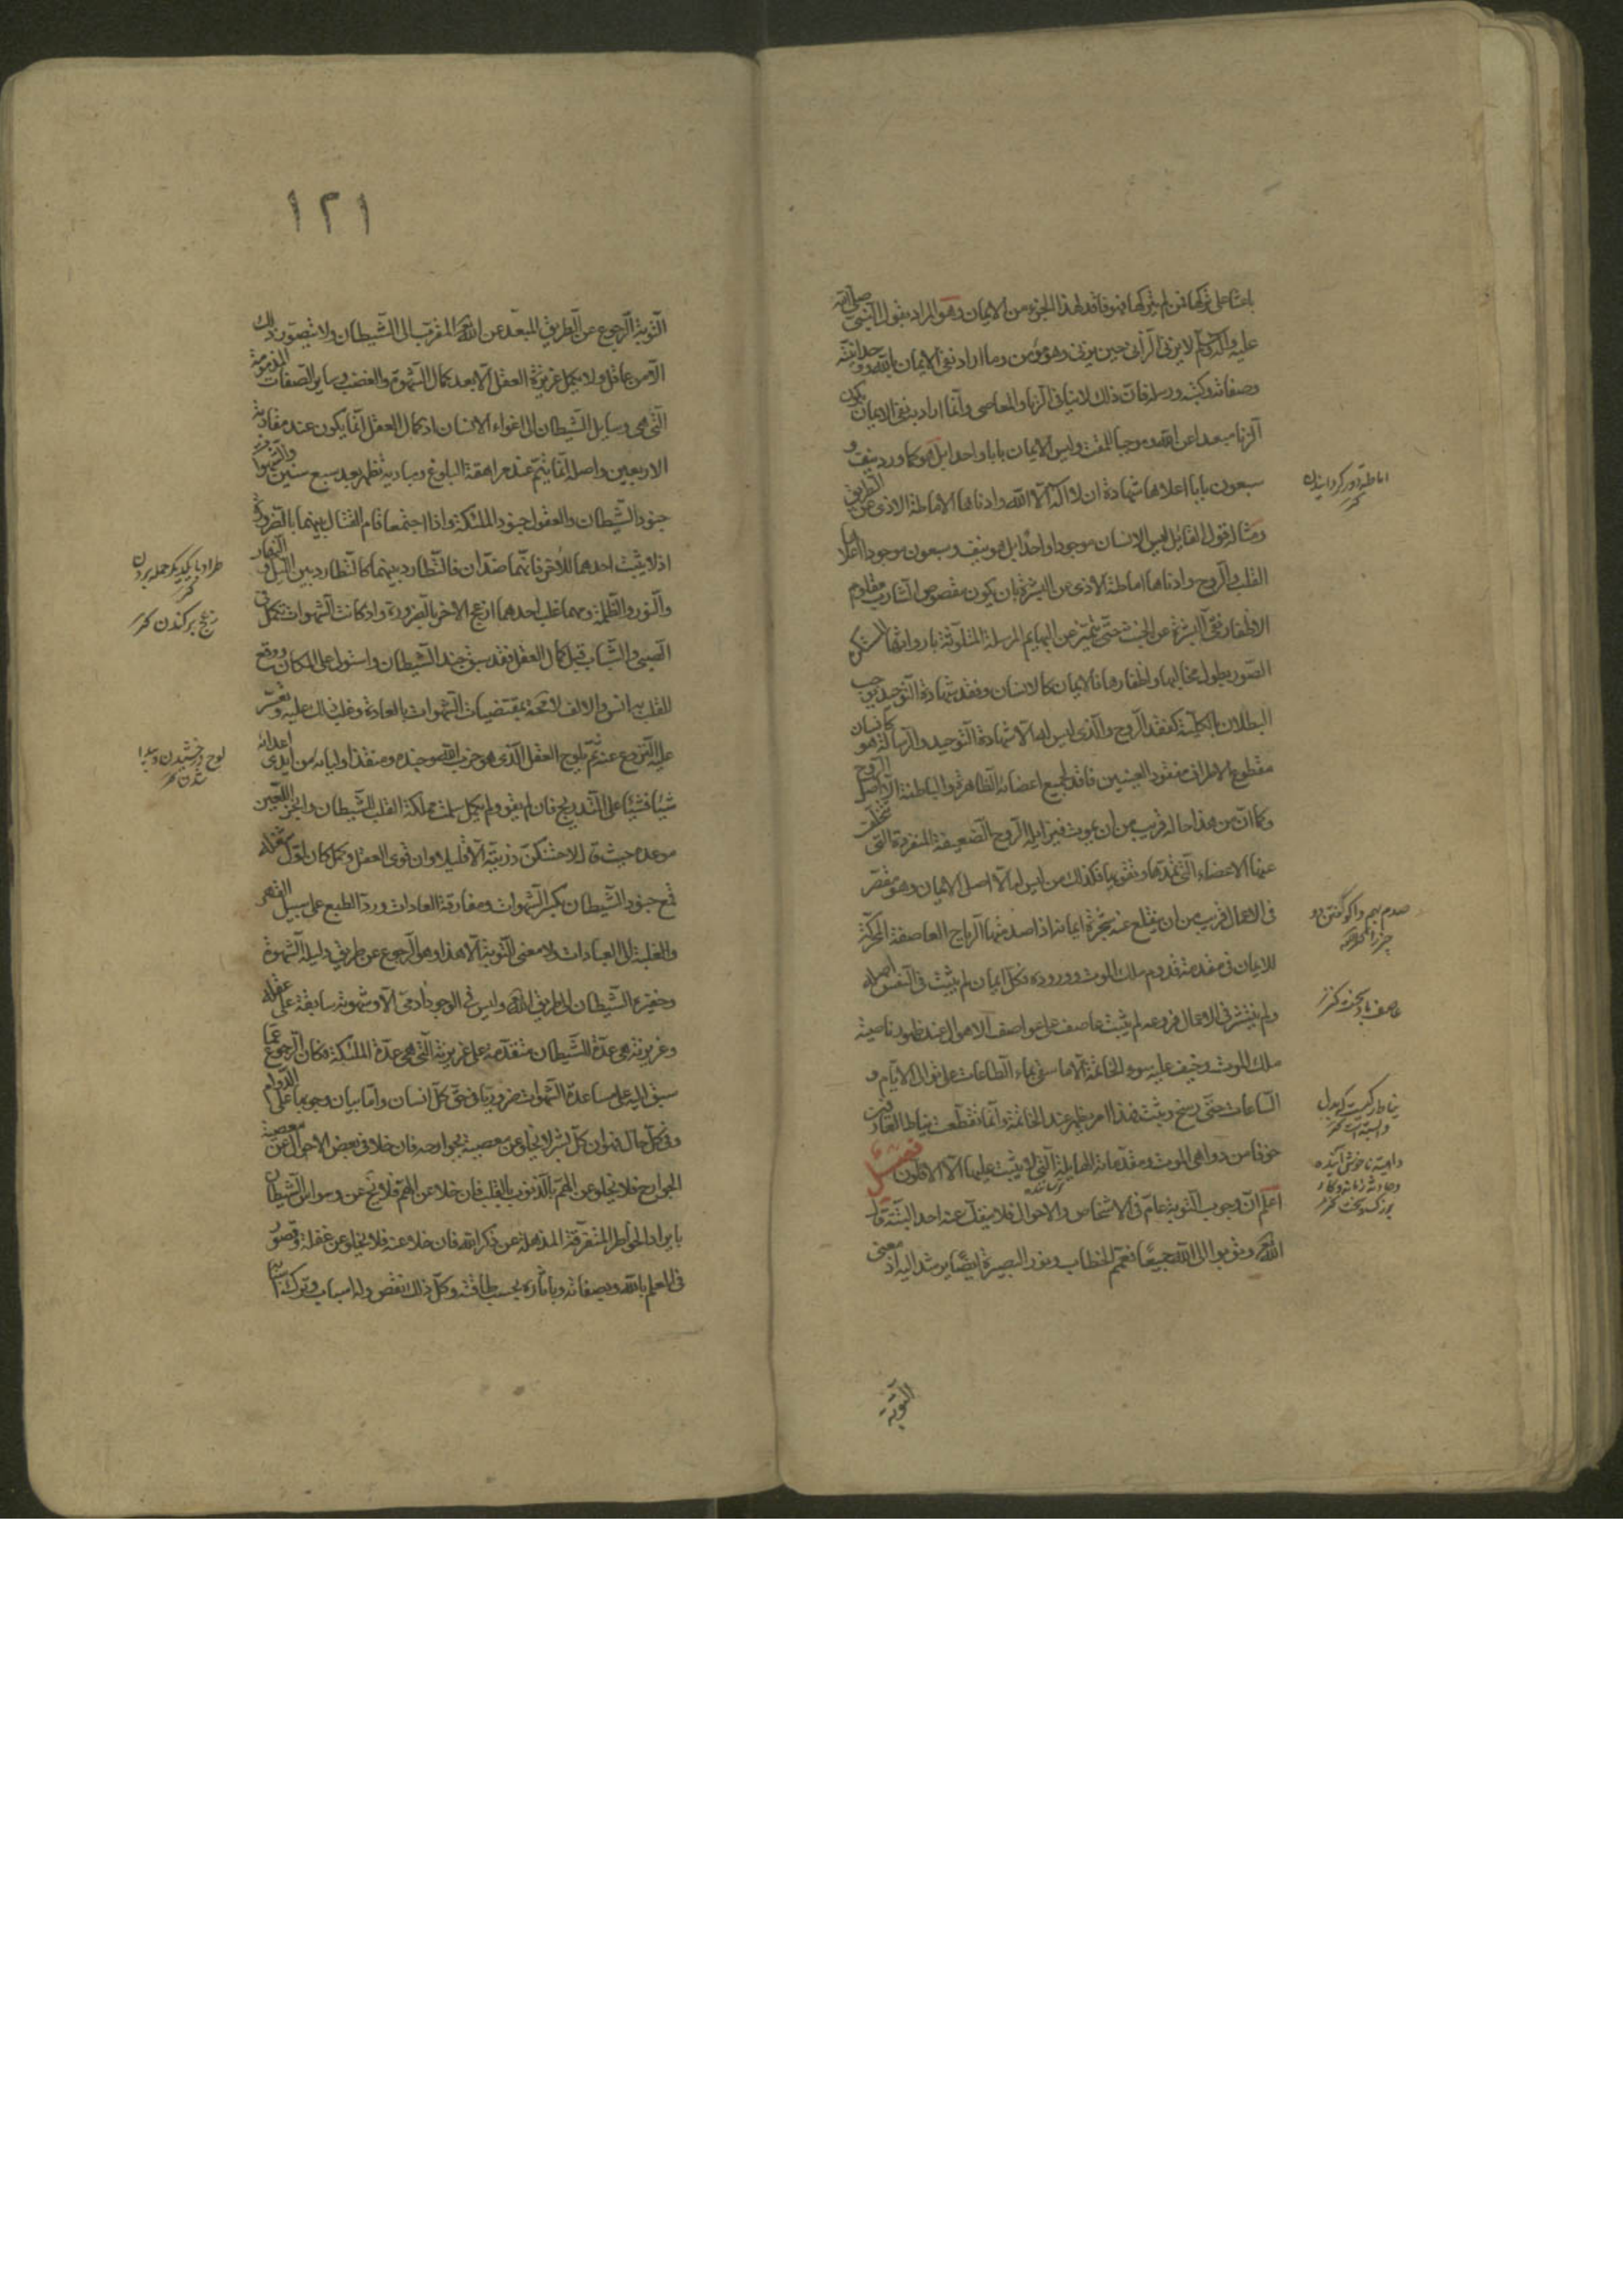 باعثا على تركها فمن لم يتركها فهو فاقد لهذا الجزء من الايمان وهو المراد بقول النبي صلى الله
عليه وآله وسلم لا يزنى الزانى حين يزنى وهو مؤمن وما اراد نفى الايمان بالله ووحدانيته
وصفاته وكتبه ورسله فان ذلك لا ينافى الزنا والمعاصى وانما اراد به نفى الايمان بكون
الزنا مبعدا عن الله وموجبا للمقت وليس الايمان بابا واحدا بل هو كما ورد نيف و
سبعون بابا اعلاها شهادة ان لا اله الا الله وادناها اماطة الاذى عن الطريق
ومثاله قول القائل ليس الانسان موجودا واحدا بل هو نيف وسبعون موجودا اعلاها
القلب والروح وادناها اماطة الاذى عن البشرة بان يكون مقصوص الشارب مقلوم
الاظفار نقى البشرة عن الخبث حتى يتميز عن البهايم المرسلة المتلوثة بارواثها المستكره
الصور بطول مخاليبها واظفارها فالايمان كالانسان وفقد شهادة التوحيد يوجب
البطلان بالكلية كفقد الروح والذى ليس له الا شهادة التوحيد والرسالة هو كانسان
مقطوع الاطراف مفقود العينين فاقد لجميع اعضائه الظاهرة والباطنة الا اصل الروح
وكما ان من هذا حاله قريب من ان يموت فيزايله الروح الضعيفة المنفردة التى تخلف
عنها الاعضاء التى تمدها وتقويها فكذلك من ليس له الا اصل الايمان وهو مقصر
فى الاعمال قريب من ان ينقلع عنه شجرة ايمانه اذا صدمتها الرياح العاصفة المحركة
للايمان فى مقدمة قدوم ملك الموت ووروده فكل ايمان لم يثبت فى النفس اصله
ولم ينتشر فى الاعمال فروعه لم يثبت على عواصف الاهوال عند ظهور ناصية
ملك الموت وخيف عليه سوء الخاتمة الا ما سقى بماء الطاعات على توالى الايام و
الساعات حتى رسخ وثبت فهذا امر يظهر عند الخاتمة وانما تقطعت نياط العارفين
خوفا من دواهى الموت ومقدماته الهايلة التى لا يثبت عليها الا الاقلون فصل
اعلم ان وجوب التوبة عام فى الاشخاص والاحوال فلا ينفك عنه احد البتة قال
الله تعالى وتوبوا الى الله جميعا فعمم الخطاب ونور البصيرة ايضا يرشد اليه اذ معنى
التوبة
اماطة دور كردانيدن كنز
صدم بهم واكوفتن دو
عاصف باد سخت كنز
نياط رگيست كه بدل
وابسته است كنز
داهية ناخوش آينده
وحادثه زمانه وكار
بزرك وسخت كنز
١٢١
التوبة الرجوع عن الطريق المبعد عن الله المقرب الى الشيطان ولا يتصور ذلك
الا من عاقل ولا يكمل غريزة العقل الا بعد كمال الشهوة والغضب وساير الصفات المذمومة
التى هى وسايل الشيطان الى اغواء الانسان اذ كمال العقل انما يكون عند مقاربة
الاربعين واصله انما يتم عند مراهقة البلوغ ومباديه تظهر بعد سبع سنين والشهوات
جنود الشيطان والعقول جنود الملئكة واذا اجتمعا قام القتال بينهما بالضرورة
اذ لا يثبت احدهما للاخر فانهما ضدان فالتطارد بينهما كالتطارد بين الليل والنهار
والنور والظلمة ومهما غلب احدهما ازعج الاخر بالضرورة واذ كانت الشهوات تكمل فى
الصبى والشباب قبل كمال العقل فقد سبق جند الشيطان واستولى على المكان ووقع
للقلب به انس والالف لا محة بمقتضيات الشهوات بالعادة وغلب ذلك عليه وتعسر
عليه النزوع عنه ثم يلوح العقل الذى هو حزب الله وجنده ومنقذ اوليائه من ايدى اعدائه
شيئا فشيئا على التدريج فان لم يقو ولم يكمل سلمت مملكة القلب للشيطان وانجز اللعين
موعده حيث قال لاحتنكن ذريته الا قليلا وان قوى العقل وكمل كان اول شغله
قمع جنود الشيطان بكسر الشهوات ومفارقة العادات ورد الطبع على سبيل القهر
والغلبة الى العبادات ولا معنى للتوبة الا هذا وهو الرجوع عن طريق دليله الشهوة
وخفيره الشيطان الى طريق الله وليس فى الوجود آدمى الا وشهوته سابقة على عقله
وغريزته هى عدة للشيطان متقدمة على غريزته التى هى عدة الملئكة فكان الرجوع عما
سبق اليه على مساعدة الشهوات ضروريا فى حق كل انسان واما بيان وجوبها على الدوام
وفى كل حال فهو ان كل بشر لا يخلو عن معصية بجوارحه فان خلا فى بعض الاحوال عن معصية
الجوارح فلا يخلو عن الهم بالذنوب بالقلب فان خلا عن الهم فلا يخ عن وسواس الشيطان
بايراد الخواطر المتفرقة المذهلة عن ذكر الله فان خلا عنه فلا يخلو عن غفلة وقصور
فى العلم بالله وبصفاته وبآثاره بحسب طاقته وكل ذلك نقص وله اسباب وترك اسبابه
طراد با يكديكر حمله بردن كنز
زعج بركندن كنز
لوح درخشيدن وپيدا
شدن كنز